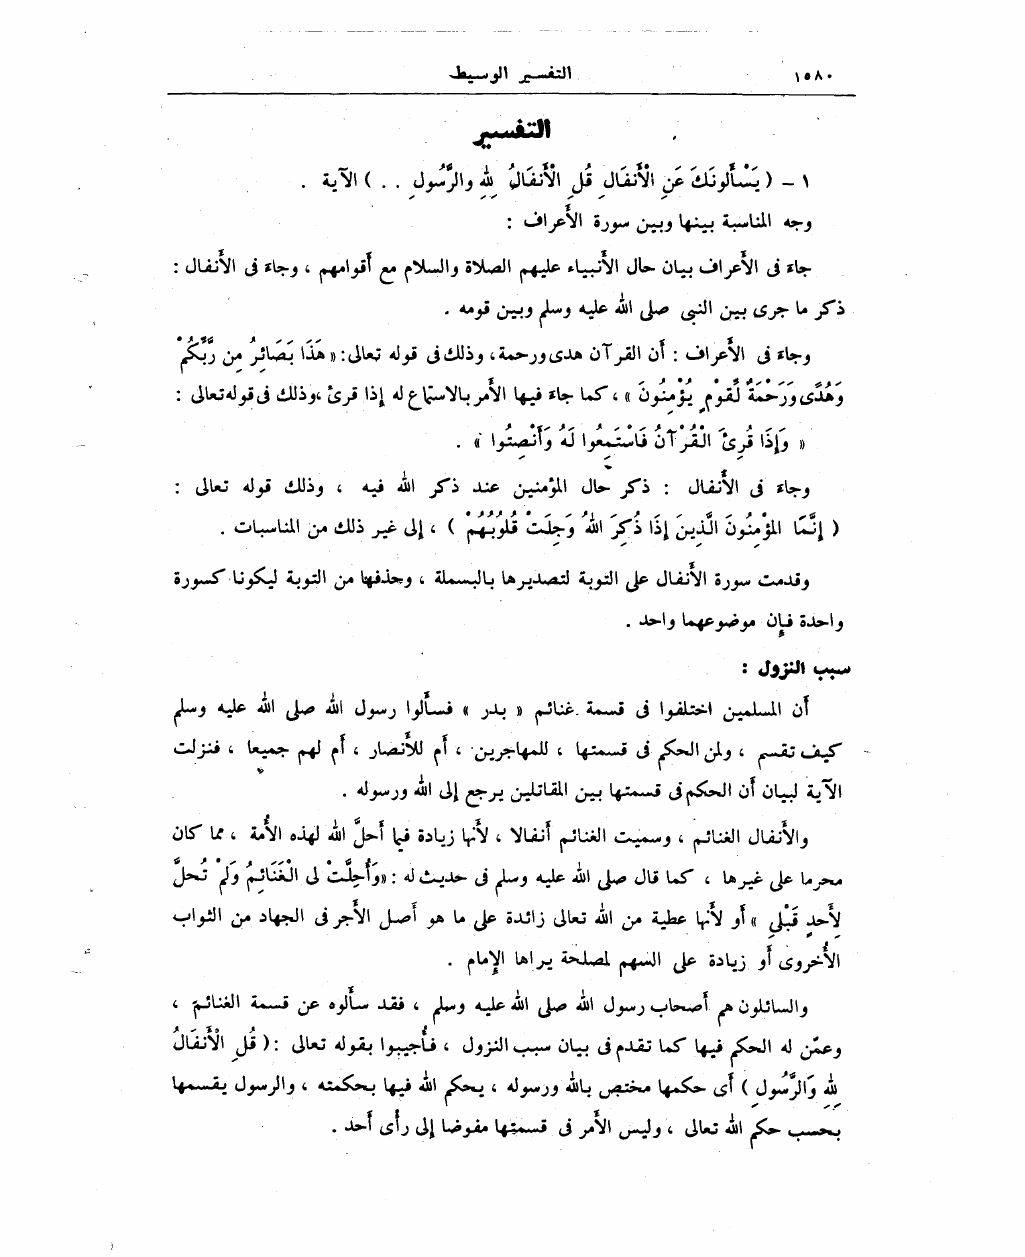 ١٥٨٠ التفسير الوسيط
التفسير
١ – ( يَسْأَلونَكَ عَنِ الْأَنفَالِ قُلِ الْأَنفَالُ لِلهِ والرَّسُولِ . . ) الآية .
وجه المناسبة بينها وبين سورة الأَعراف :
جاءَ فى الأَعراف بيان حال الأَنبياء عليهم الصلاة والسلام مع أَقوامهم ، وجاءَ فى الأَنفال :
ذكر ما جرى بين النبى صلى الله عليه وسلم وبين قومه .
وجاءَ فى الأَعراف : أَن القرآن هدى ورحمة، وذلك فى قوله تعالى: « هَذَا بَصَائِرُ مِن رَّبِّكُمْ
وَهُدًى وَرَحْمَةٌ لِّقَوْمٍ يُؤْمِنُونَ » ، كما جاءَ فيها الأَمر بالاستماع له إذا قرئ ،وذلك فى قوله تعالى :
« وَإِذَا قُرِئَ الْقُرْآنُ فَاسْتَمِعُوا لَهُ وَأَنْصِتُوا » .
وجاءَ فى الأَنفال : ذكر حال المؤمنين عند ذكر الله فيه ، وذلك قوله تعالى :
( إِنَّمَا المؤْمِنُونَ الَّذِينَ إِذَا ذُكِرَ اللهُ وَجِلَتْ قُلُوبُهُمْ ) ، إلى غير ذلك من المناسبات .
وقدمت سورة الأَنفال على التوبة لتصديرها بالبسملة ، وحذفها من التوبة ليكونا كسورة
واحدة فإن موضوعهما واحد .
سبب النزول :
أَن المسلمين اختلفوا فى قسمة غنائم « بدر » فسأَلوا رسول الله صلى الله عليه وسلم
كيف تقسم ، ولمن الحكم فى قسمتها ، للمهاجرين ، أَم للأَنصار ، أَم لهم جميعا ، فنزلت
الآية لبيان أَن الحكم فى قسمتها بين المقاتلين يرجع إلى الله ورسوله .
والأَنفال الغنائم ، وسميت الغنائم أَنفالا ، لأَنها زيادة فيما أَحلَّ الله لهذه الأُمة ، مما كان
محرما على غيرها ، كما قال صلى الله عليه وسلم فى حديث له : «وَأُحِلَّتْ لى الْغَنَائِمُ وَلَمْ تُحلَّ
لِأَحدٍ قَبْلِى » أَو لأَنها عطية من الله تعالى زائدة على ما هو أَصل الأَجر فى الجهاد من الثواب
الأُخروى أَو زيادة على السهم لمصلحة يراها الإِمام .
والسائلون هم أَصحاب رسول الله صلى الله عليه وسلم ، فقد سأَلوه عن قسمة الغنائم ،
وعمّن له الحكم فيها كما تقدم فى بيان سبب النزول ، فأُجيبوا بقوله تعالى :( قُلِ الْأَنفَالُ
لِلهِ وَالرَّسُولِ ) أَى حكمها مختص بالله ورسوله ، يحكم الله فيها بحكمته ، والرسول يقسمها
بحسب حكم الله تعالى ، وليس الأَمر فى قسمتها مفوضا إلى رأى أَحد .